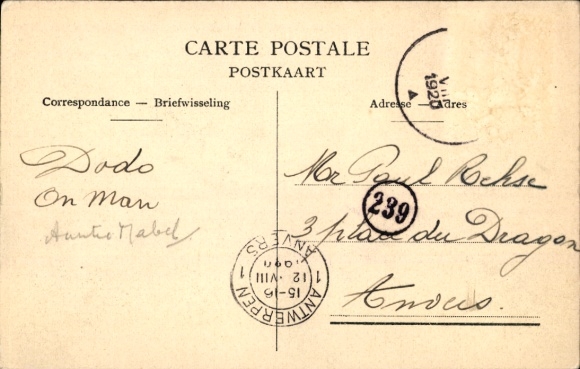 CARTE POSTALE
POSTKAART
Correspondance — Briefwisseling
Adresse — Adres
VIII
1920
Dodo
On Man
Auntie Mabel
Mr Paul Rehse
239
3 place du Dragon
Anvers.
1 ANTWERPEN 1
15-16
12 · VIII
ANVERS